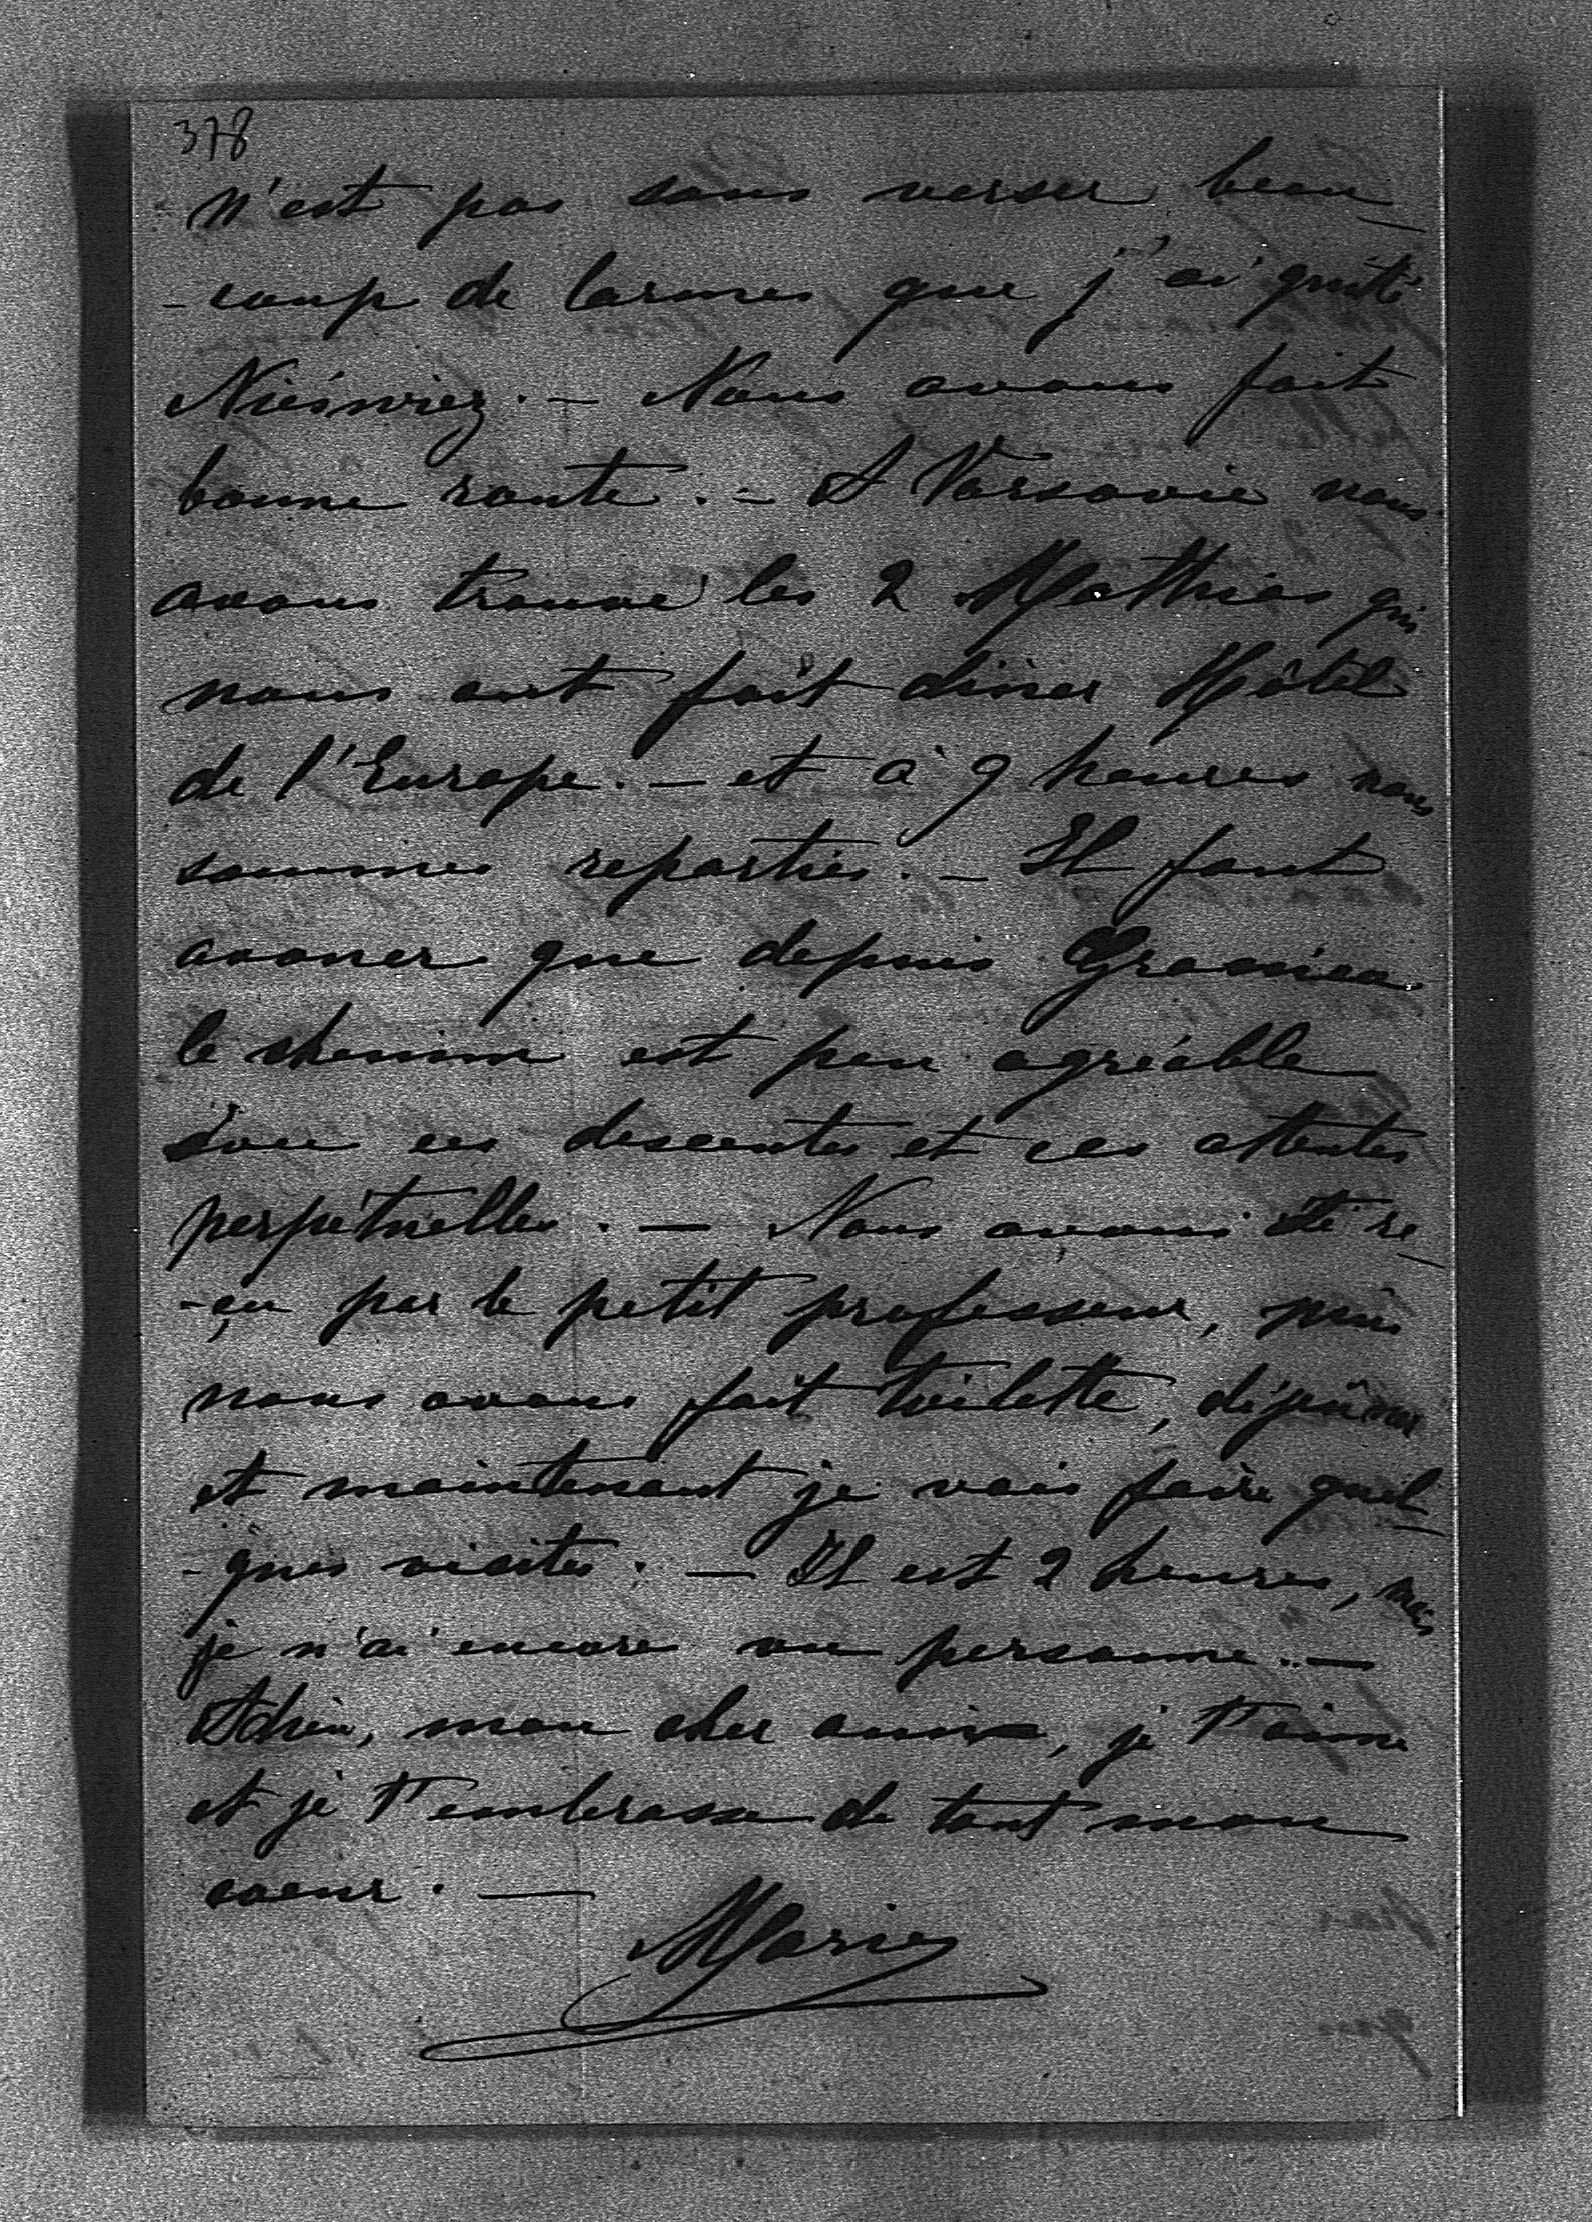 378
n'est pas sans verser beau-
-coup de larmes que j'ai quitté
Nieświez. — Nous avons fait
bonne route. — A Varsovie nous
avons trouvé les 2 Mathias qui
nous ont fait diner Hôtel
de l'Europe. — et à 9 heures nous
sommes reparties. — Il faut
avouer que depuis Granica
le chemin est peu agréable
avec ces descentes et ces attentes
perpétuelles. — Nous avons été re-
-çu par le petit professeur, puis
nous avons fait toilette, déjeûner
et maintenant je vais faire quel-
-ques visites. — Il est 2 heures, mais
je n'ai encore vu personne. —
Adieu, mon cher ami, je t'aime
et je t'embrasse de tout mon
coeur. —
Marie